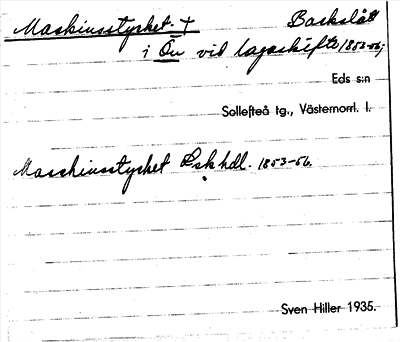 Maskinsstycket + Backslått
i Ön vid lagaskifte 1853-56;
Eds s:n
Sollefteå tg., Västernorrl. l.
Masskinsstycket Lskhdl. 1853-56.
Sven Hiller 1935.